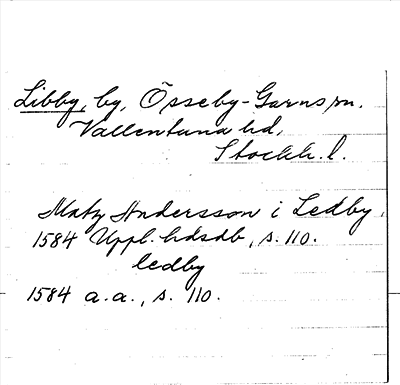 Libby, by, Össeby-Garns sn.
Vallentuna hd,
Stockh. l.
Matz Andersson i Ledby,
1584 Uppl. hdsdb, s. 110.
ledby
1584 a.a., s. 110.